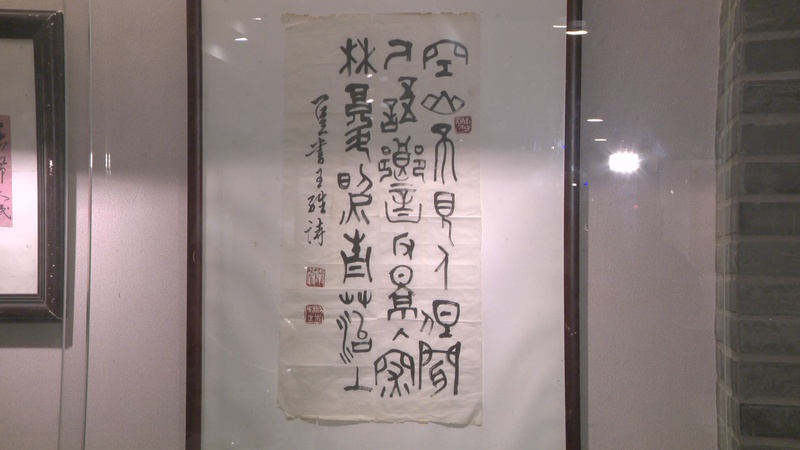 空山不見人但聞
人語響反景入深
林復照青菭上
書王維詩